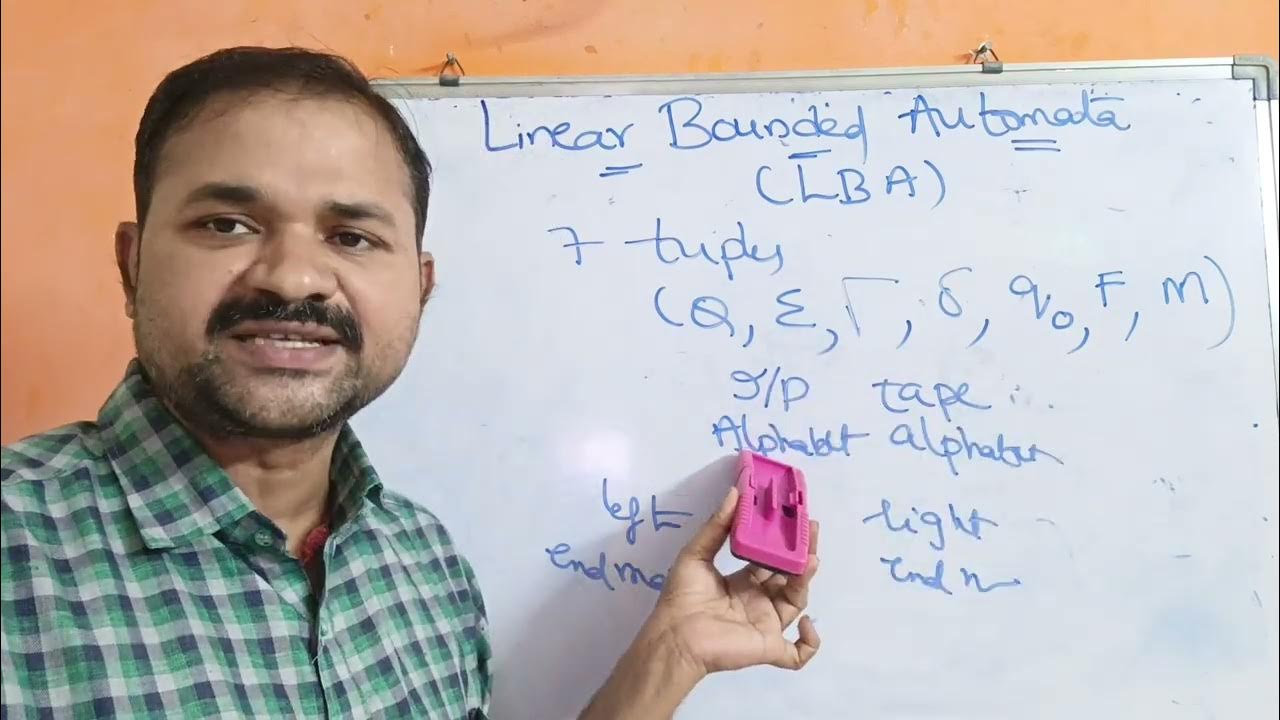 Linear Bounded Automata
(LBA)
7 tuples
(Q, Σ, Γ, δ, q₀, F, M)
I/P tape
Alphabet alphabet
left right
End End